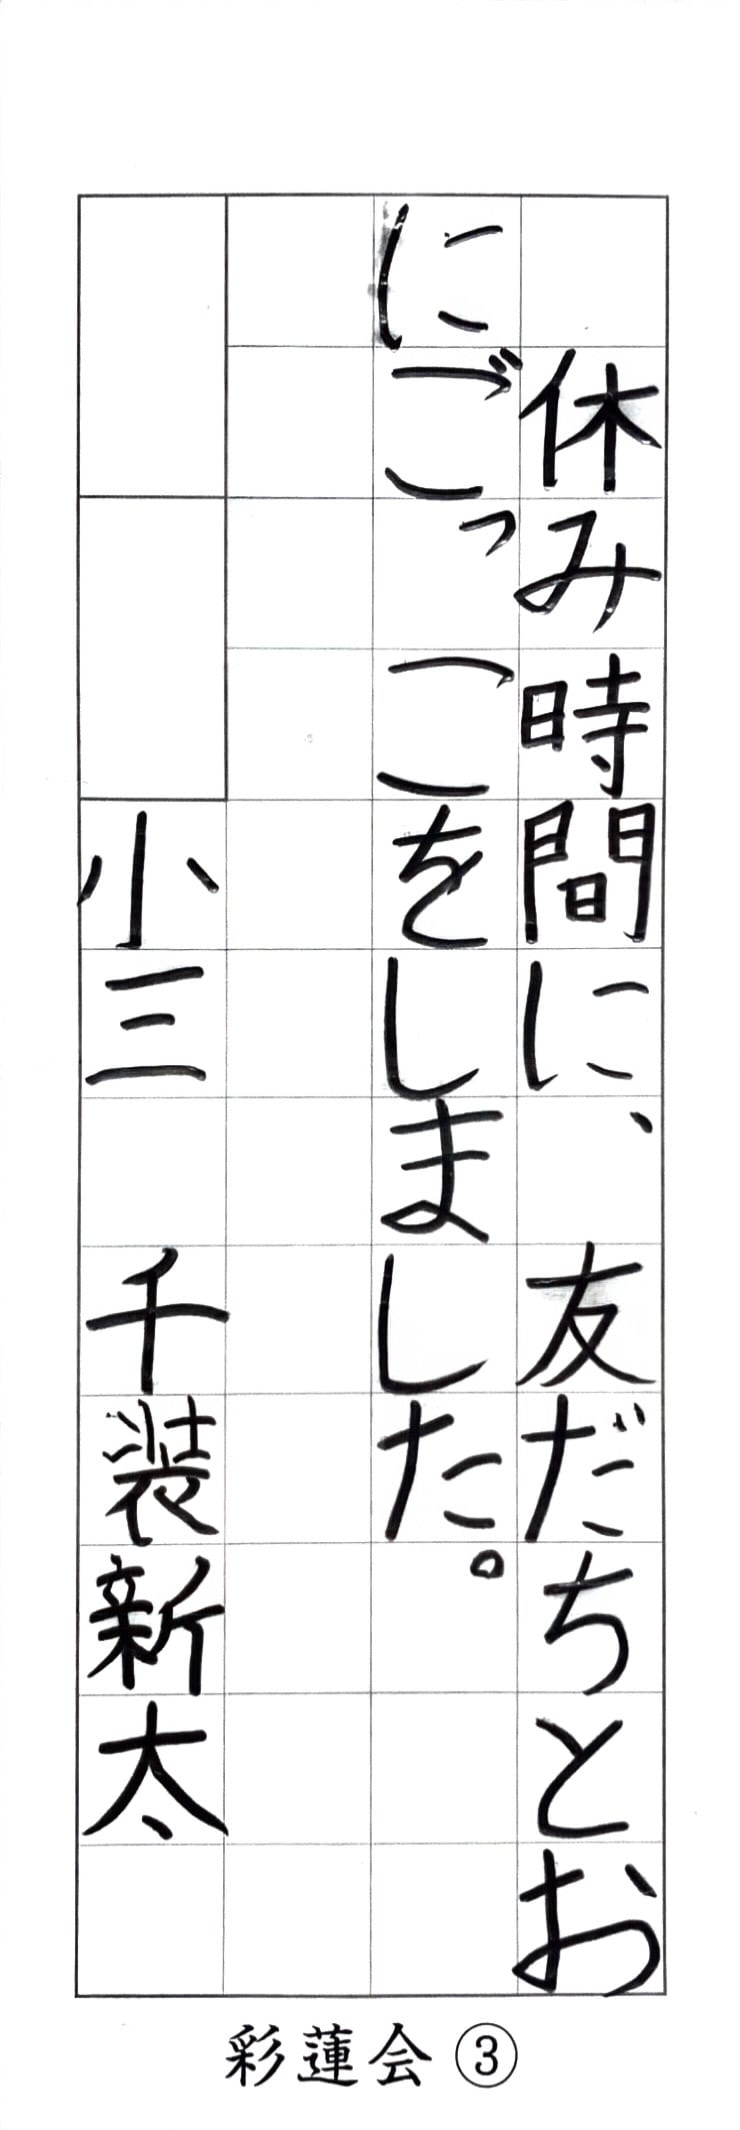 休み時間に、友だちとお
にごっこをしました。
小三 千装新太
彩蓮会③